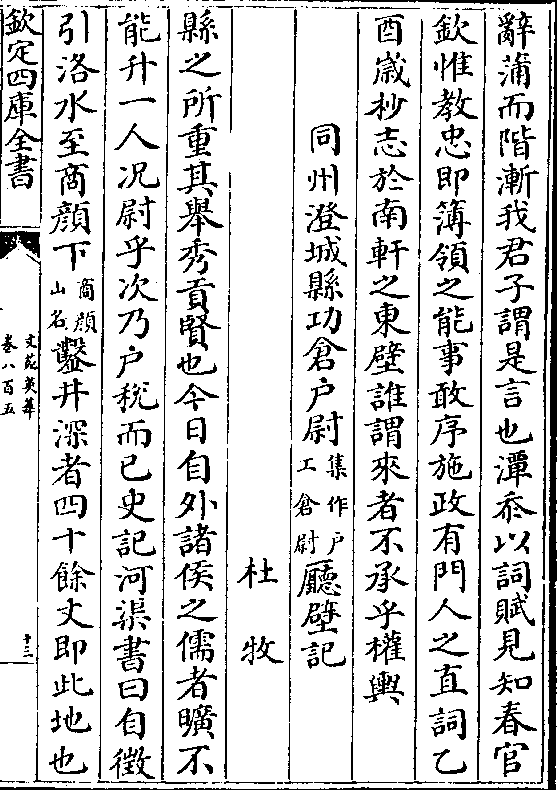 辭蒲而階漸我君子謂是言也潭忝以詞賦見知春官
欽惟教忠即簿領之能事敢序施政有門人之直詞乙
酉嵗杪志於南軒之東壁誰謂來者不承乎權輿
同州澄城縣功倉户尉集作户工倉尉廳壁記
杜牧
縣之所重其舉秀貢賢也今日自外諸侯之儒者曠不
能升一人况尉乎次乃户稅而已史記河渠書曰自徵
引洛水至商顔下商顔山名鑿井深者四十餘丈即此地也
欽定四庫全書
文苑英華
卷八百五
十三